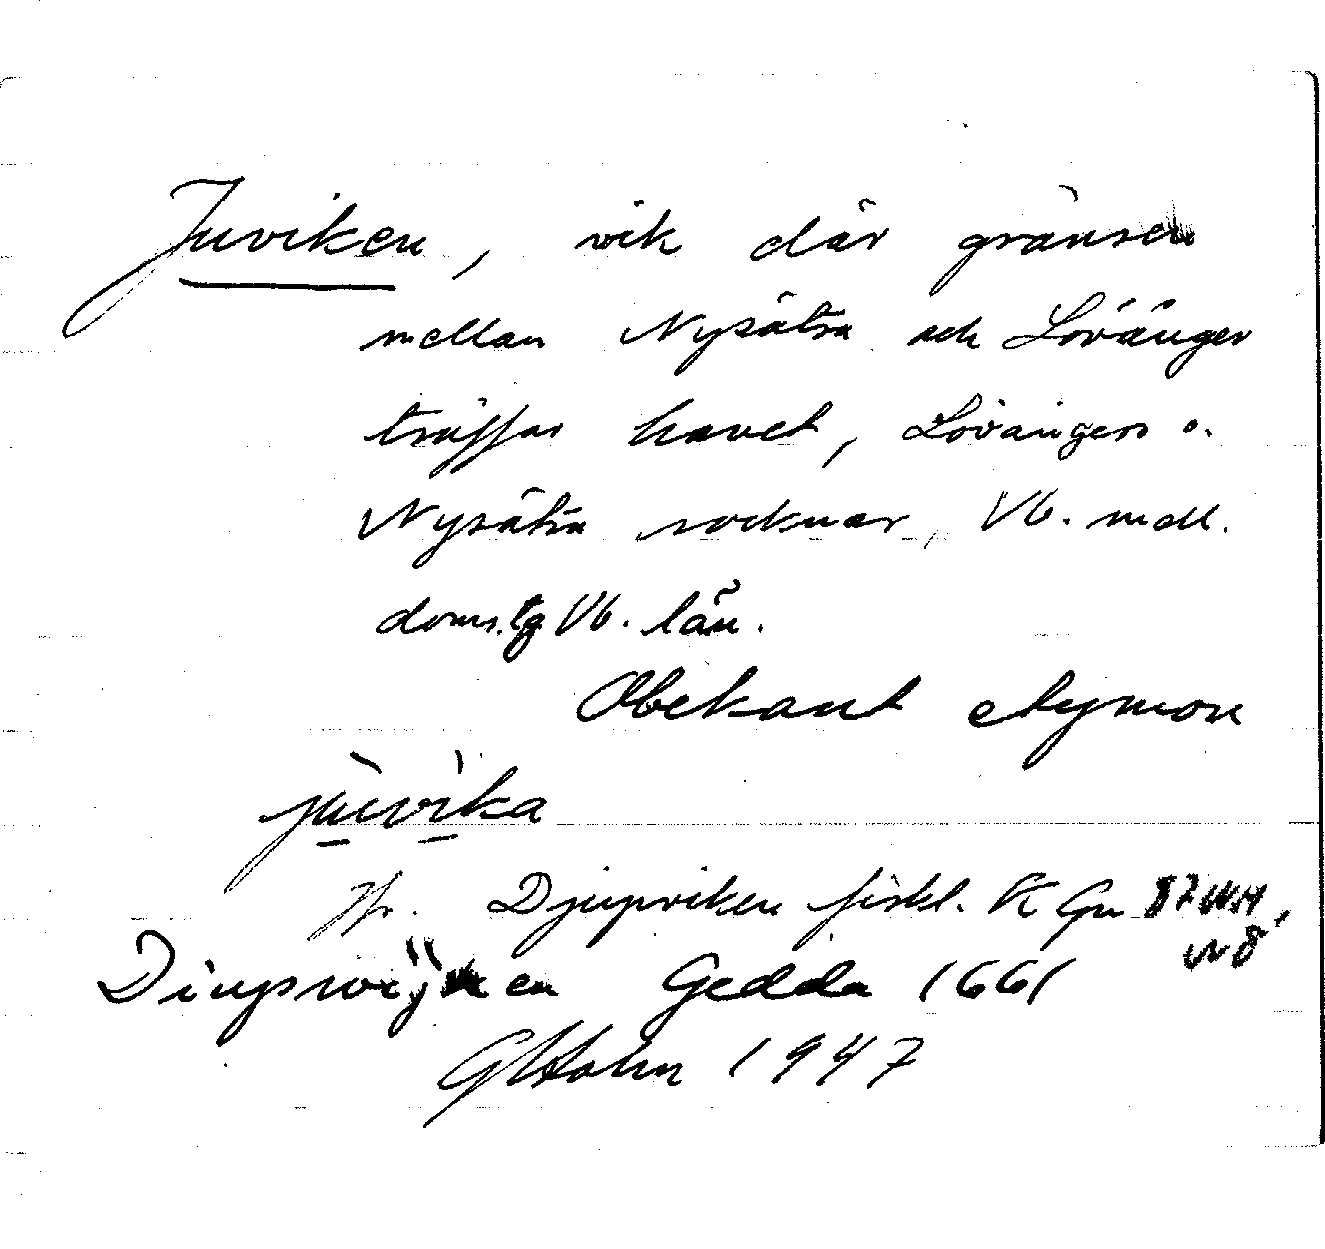 Juviken, vik där gränsen
mellan Nysätra och Lövånger
träffar havet, Lövångers o.
Nysätra socknar, Vb. mell.
doms.tg Vb. län.
Obekant etymon
jùvìka
Jfr. Djupviken fiskl. K Gu
Diupswijken Gedda 1661
G Holm 1947